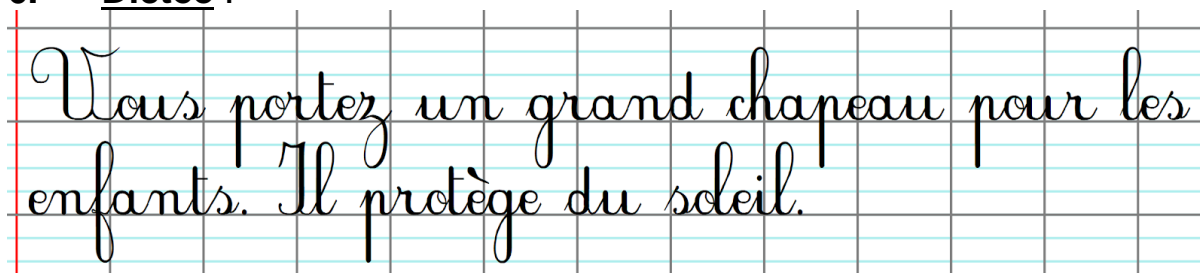 Vous portez un grand chapeau pour les
enfants. Il protège du soleil.